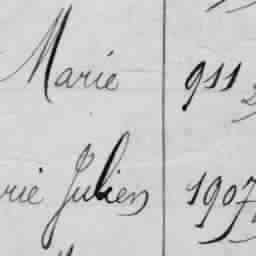 Marie 911
rie Julien 1907